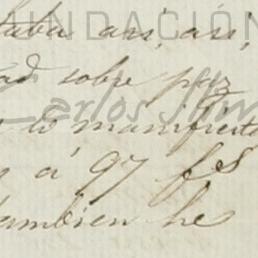 FUNDACIÓN
taba asi, asi,
ad sobre
Carlos
lo manifiesta
á 97 fs
tambien he